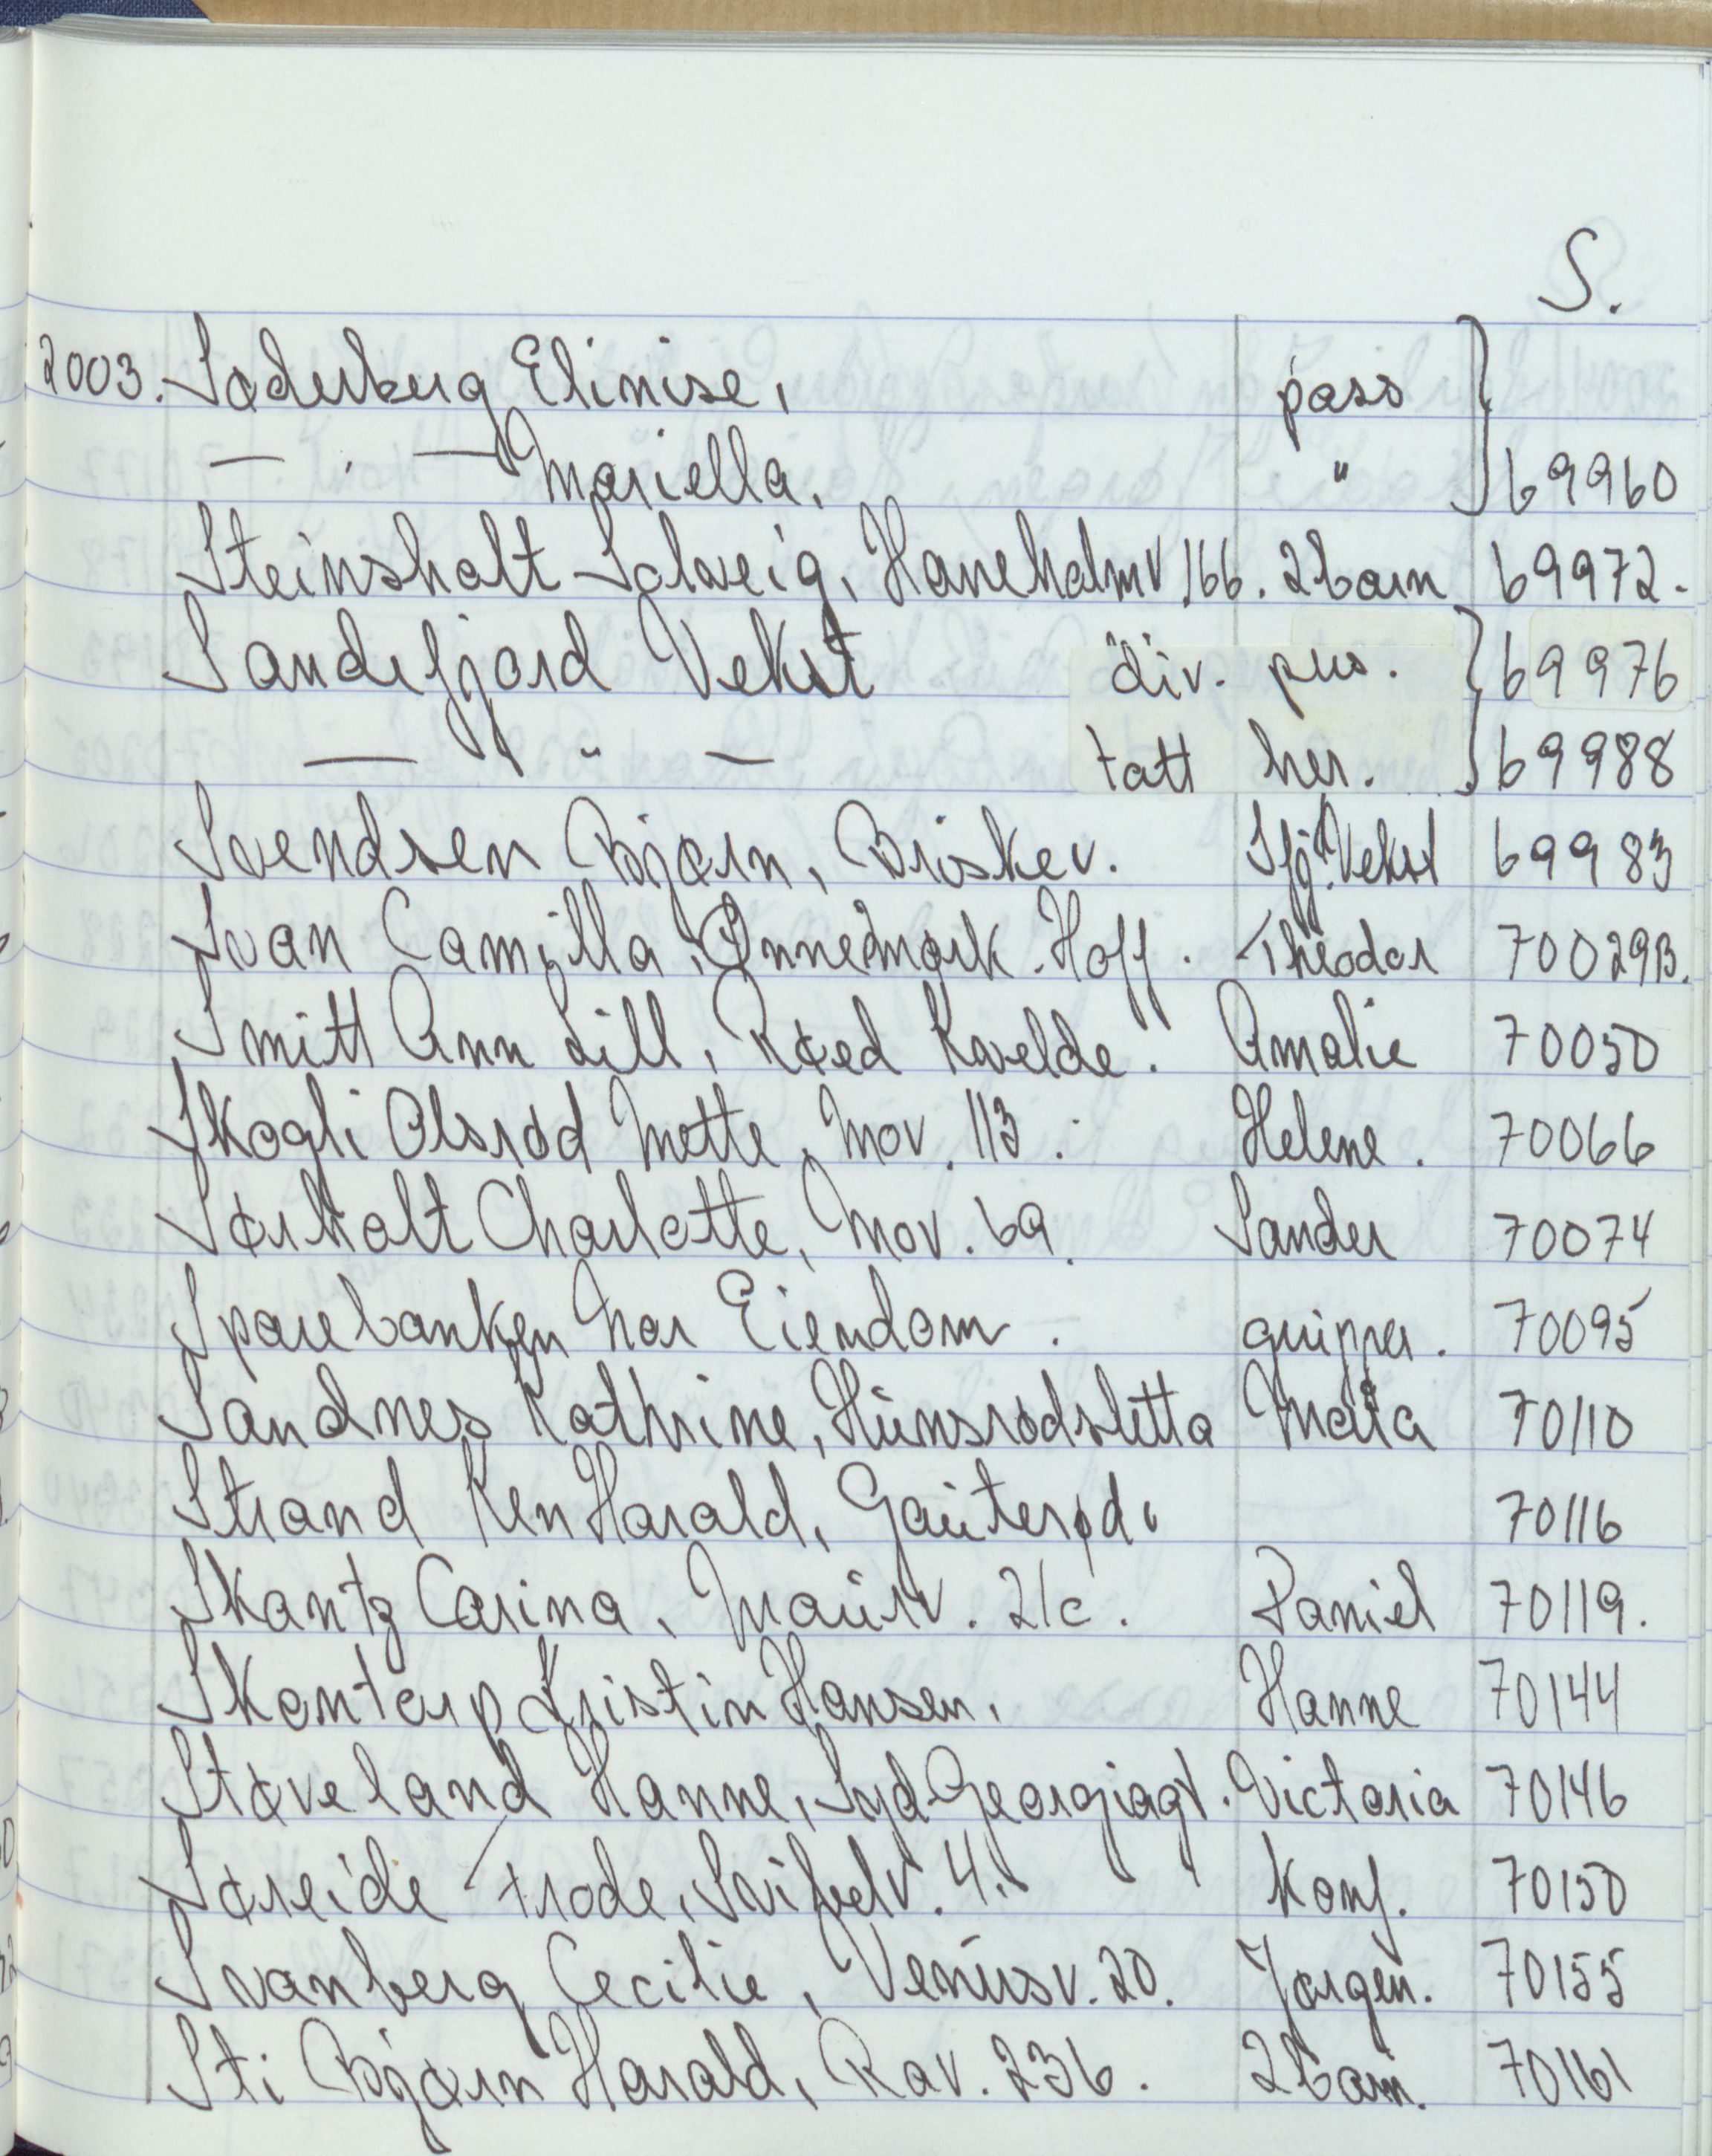 S.
2003. Søderberg Elinise, pass
— . — Mariella, " 69960
Steinsholt Solveig, Haneholmv 166. 2 barn 69972.
Sandefjord Vekst div. pers. 69976
— " — tatt her. 69988
Svendsen Bjørn, Briskev. Sfj. Vekst 69983
Svan Camilla, Ønnemørk. Hoff. Theodor 70029B.
Smitt Ann Lill, Røed Kvelde. Amalie 70050
Skogli Olsrød Mette, Mov. 113. Helene. 70066
Sørholt Charlotte, Mov. 69. Sander 70074
Sparebanken Nor Eiendom. gruppe. 70095
Sandnes Kathrine, Hünsrødsletta Maia 70110
Strand Ken Harald, Gaüterød. 70116
Skantz Carina, Maürv. 21c. Daniel 70119.
Skontorp Kristin Hansen, Hanne 70144
Støveland Hanne, Syd Georgiagt. Victoria 70146
Søreide Frode, 4. Konf. 70150
Svanberg Cecilie, Venüsv. 20. Jørgen. 70155
Sti Bjørn Harald, Rav. 236. 2 barn. 70161